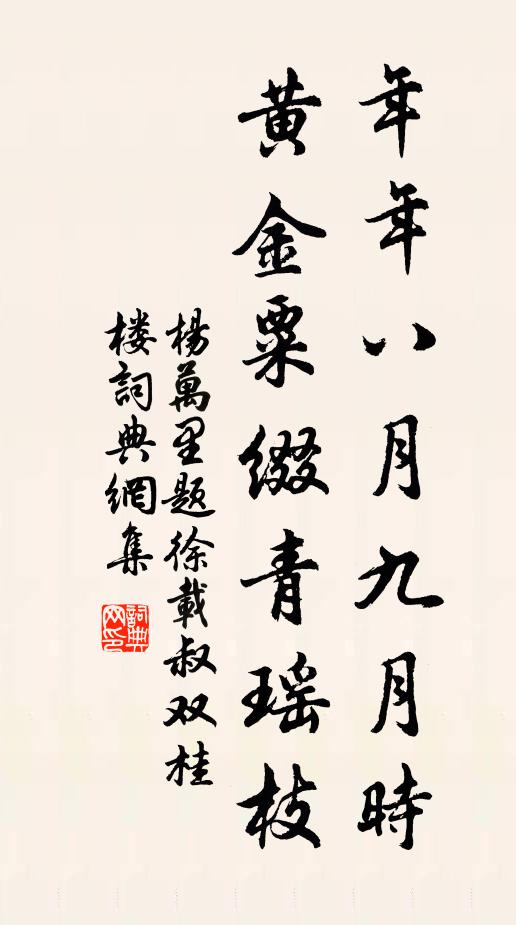 年年八月九月時
黃金粟綴青瑤枝
楊萬里题徐載叔双桂
楼詞典網集
詞典
网印